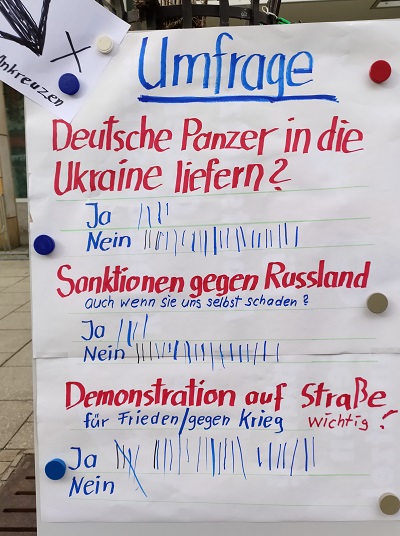 Ankreuzen
Umfrage
Deutsche Panzer in die
Ukraine liefern?
Ja
Nein
Sanktionen gegen Russland
auch wenn sie uns selbst schaden?
Ja
Nein
Demonstration auf Straße
für Frieden/gegen Krieg wichtig!
Ja
Nein